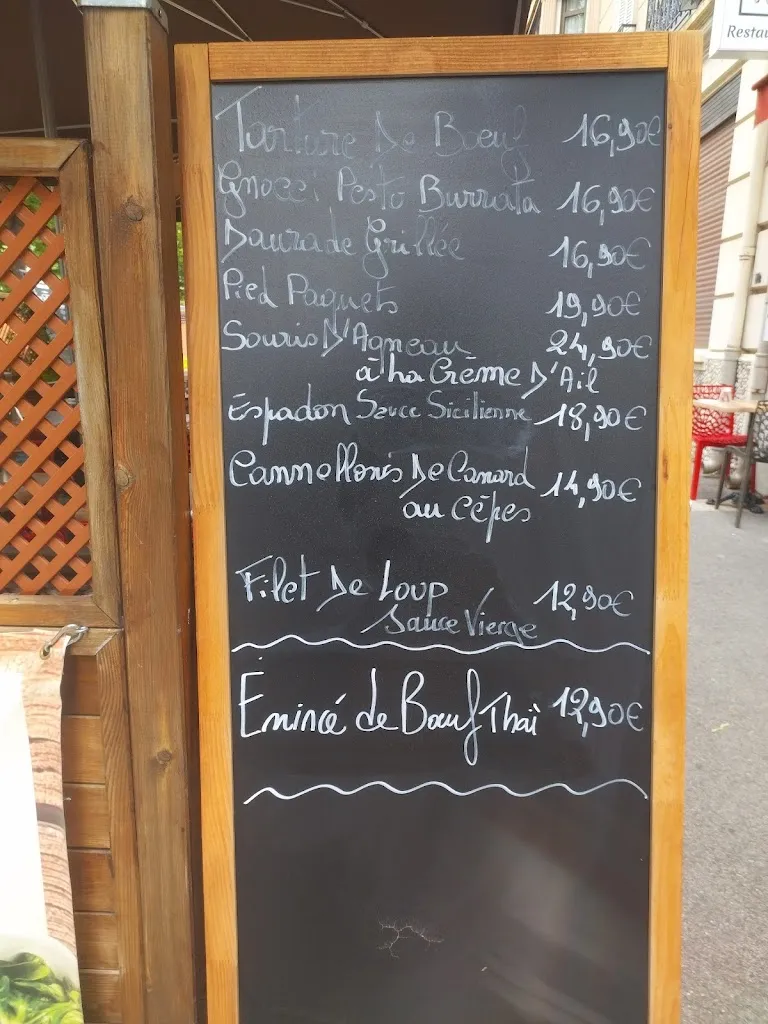 Tartare De Bœuf 16,90€
Gnocci Pesto Burrata 16,90€
Daurade Grillée 16,90€
Pied Paquets 19,90€
Souris D'Agneau 24,90€
à La Crème D'Ail
Espadon Sauce Sicilienne 18,90€
Cannellonis De Canard 14,90€
au Cêpes
Filet De Loup 12,90€
Sauce Vierge
Émincé de Bœuf Thaï 12,90€